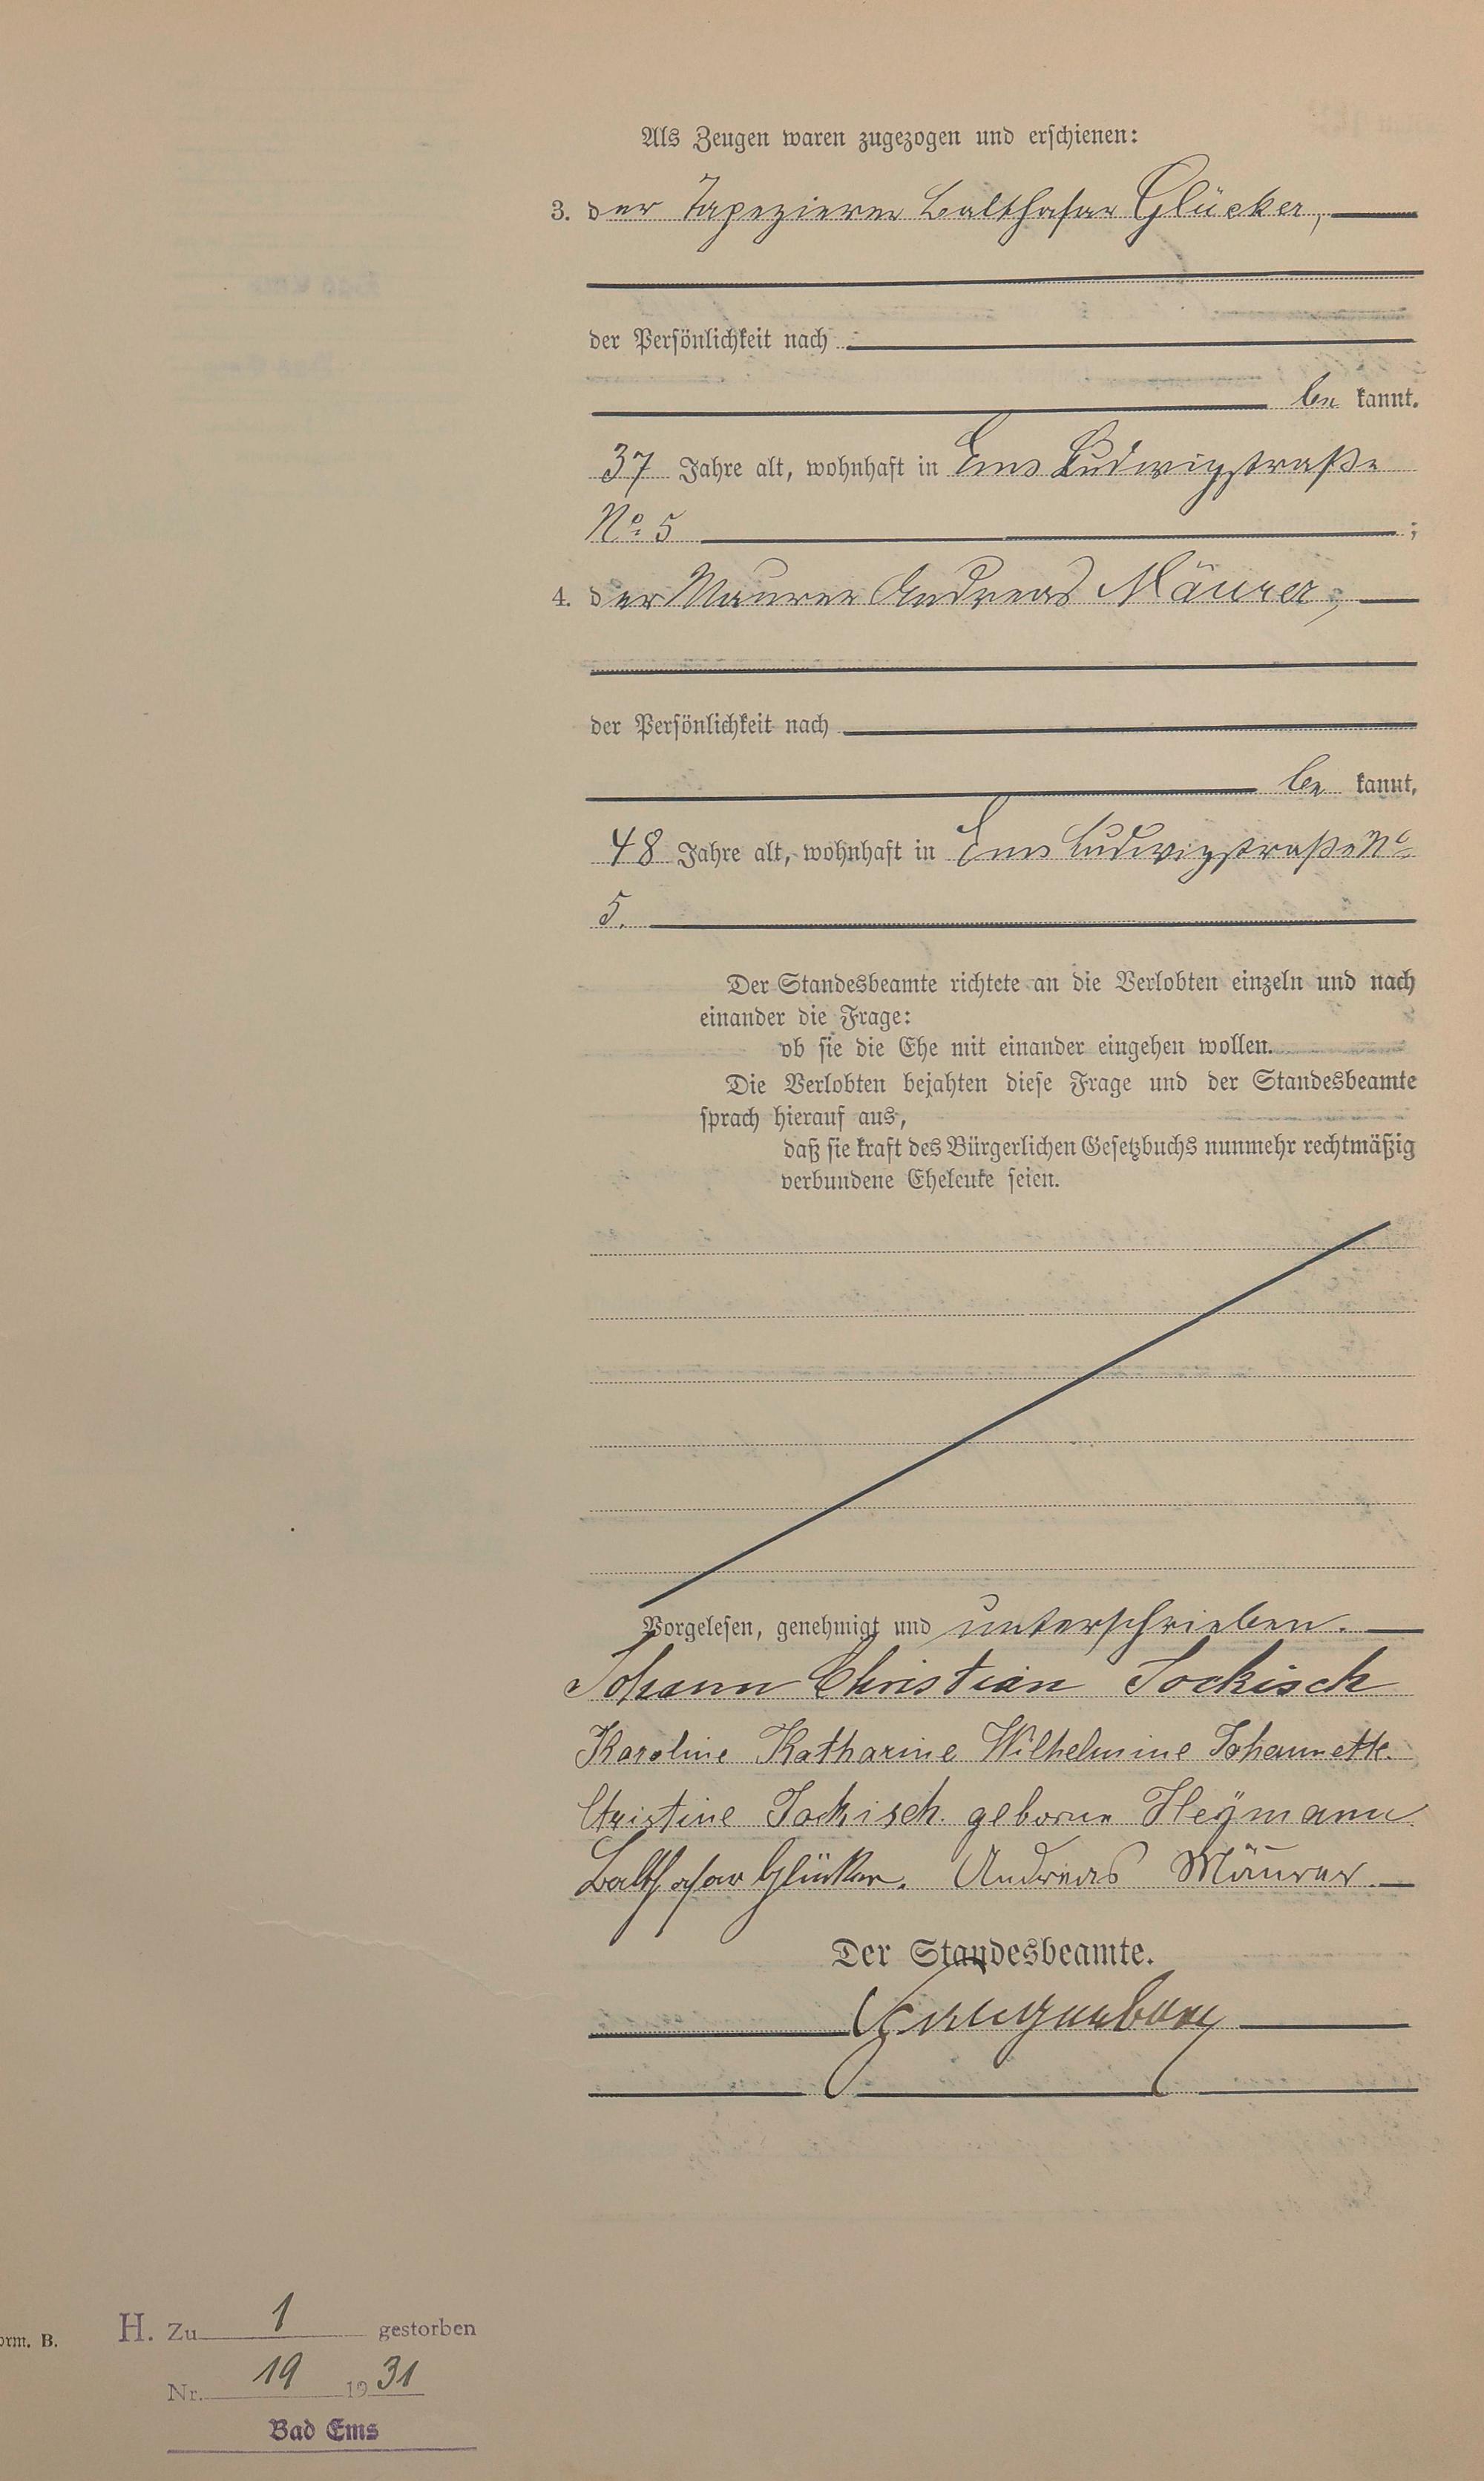 Als Zeugen waren zugezogen und erschienen:
3. der Tapezierer Balthasar Glücker,
der Persönlichkeit nach
be kannt.
37 Jahre alt, wohnhaft in Ems Ludwigstraße
No. 5 ;
4. der Maurer Andreas Mäurer,
der Persönlichkeit nach
be kannt,
48 Jahre alt, wohnhaft in Ems Ludwigstraße No
5.
Der Standesbeamte richtete an die Verlobten einzeln und nach
einander die Frage:
ob sie die Ehe mit einander eingehen wollen.
Die Verlobten bejahten diese Frage und der Standesbeamte
sprach hierauf aus,
daß sie kraft des Bürgerlichen Gesetzbuchs nunmehr rechtmäßig
verbundene Eheleute seien.
Vorgelesen, genehmigt und unterschrieben.
Johann Christian Jockisch
Karoline Katharine Wilhelmine Johannette
Christine Jockisch geborne Heÿmann
Balthasar Glücker. Andreas Mäurer
Der Standesbeamte.
orm. B.
H. Zu 1 gestorben
Nr. 19 1931
Bad Ems